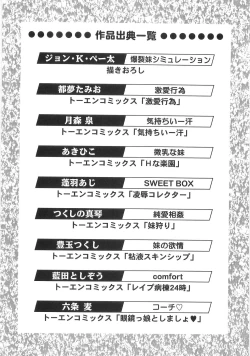 ●●●●●●●● 作品出典一覧 ●●●●●●●●
ジョン・K・ペー太 爆裂妹シミュレーション
描きおろし
都夢たみお 激愛行為
トーエンコミックス「激愛行為」
月森 泉 気持ちいー汗
トーエンコミックス「気持ちいー汗」
あきひこ 微乳な妹
トーエンコミックス「Hな楽園」
蓮羽あじ SWEET BOX
トーエンコミックス「凌辱コレクター」
つくしの真琴 純愛相姦
トーエンコミックス「妹狩り」
豊玉つくし 妹の欲情
トーエンコミックス「粘液スキンシップ」
藍田としぞう comfort
トーエンコミックス「レイプ病棟24時」
六条 麦 コーチ♡
トーエンコミックス「眼鏡っ娘としましょ♥」